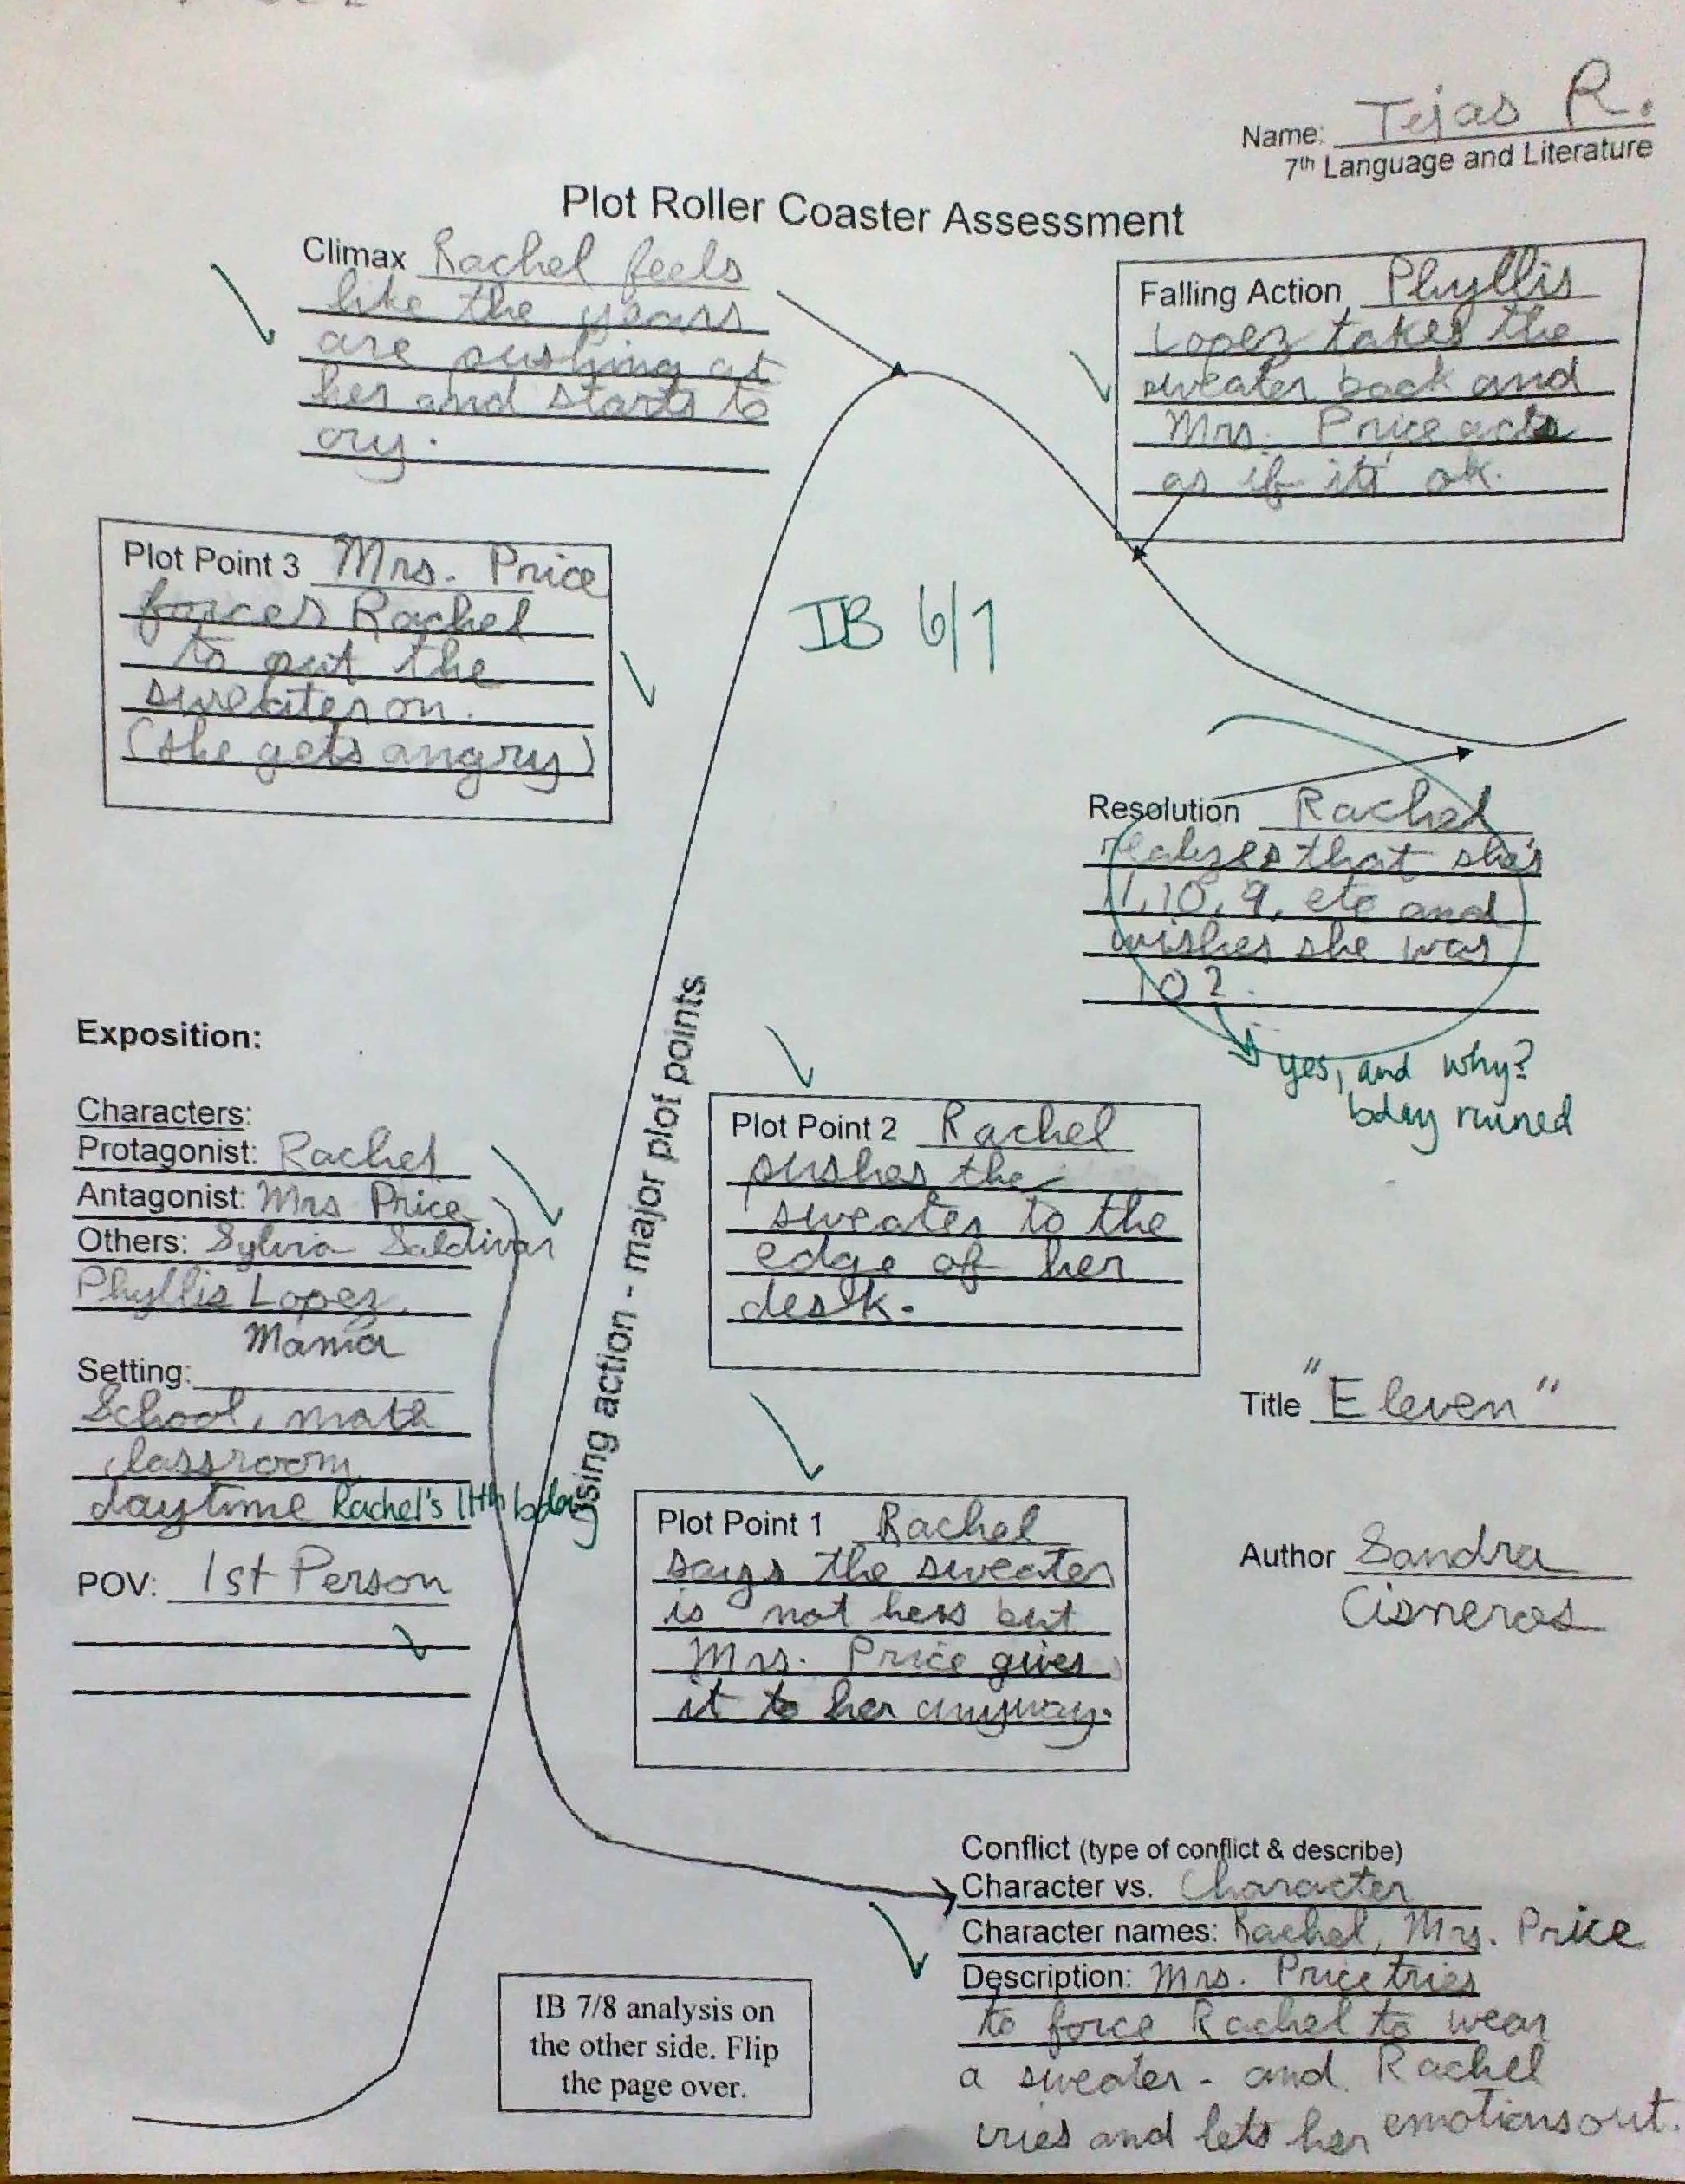 Name: Tejas R.
7th Language and Literature
Plot Roller Coaster Assessment
Climax Rachel feels
like the years
are pushing at
her and starts to
cry.
Falling Action Phyllis
Lopez takes the
sweater back and
Mrs. Price acts
as if it's ok.
Plot Point 3 Mrs. Price
forces Rachel
to put the
sweater on.
(she gets angry)
IB 6/7
Resolution Rachel
realizes that she's
11, 10, 9, etc and
wishes she was
102.
yes, and why?
bday ruined
Exposition:
Characters:
Protagonist: Rachel
Antagonist: Mrs Price
Others: Sylvia Saldivar
Phyllis Lopez,
Mania
Setting:
School, math
classroom
daytime Rachel's 11th bday
POV: 1st Person
Rising action - major plot points
Plot Point 2 Rachel
pushes the
sweater to the
edge of her
desk.
Title "Eleven"
Plot Point 1 Rachel
says the sweater
is not hers but
Mrs. Price gives
it to her anyway.
Author Sandra
Cisneros
Conflict (type of conflict & describe)
Character vs. Character
Character names: Rachel, Mrs. Price
Description: Mrs. Price tries
to force Rachel to wear
a sweater - and Rachel
cries and lets her emotions out.
IB 7/8 analysis on
the other side. Flip
the page over.